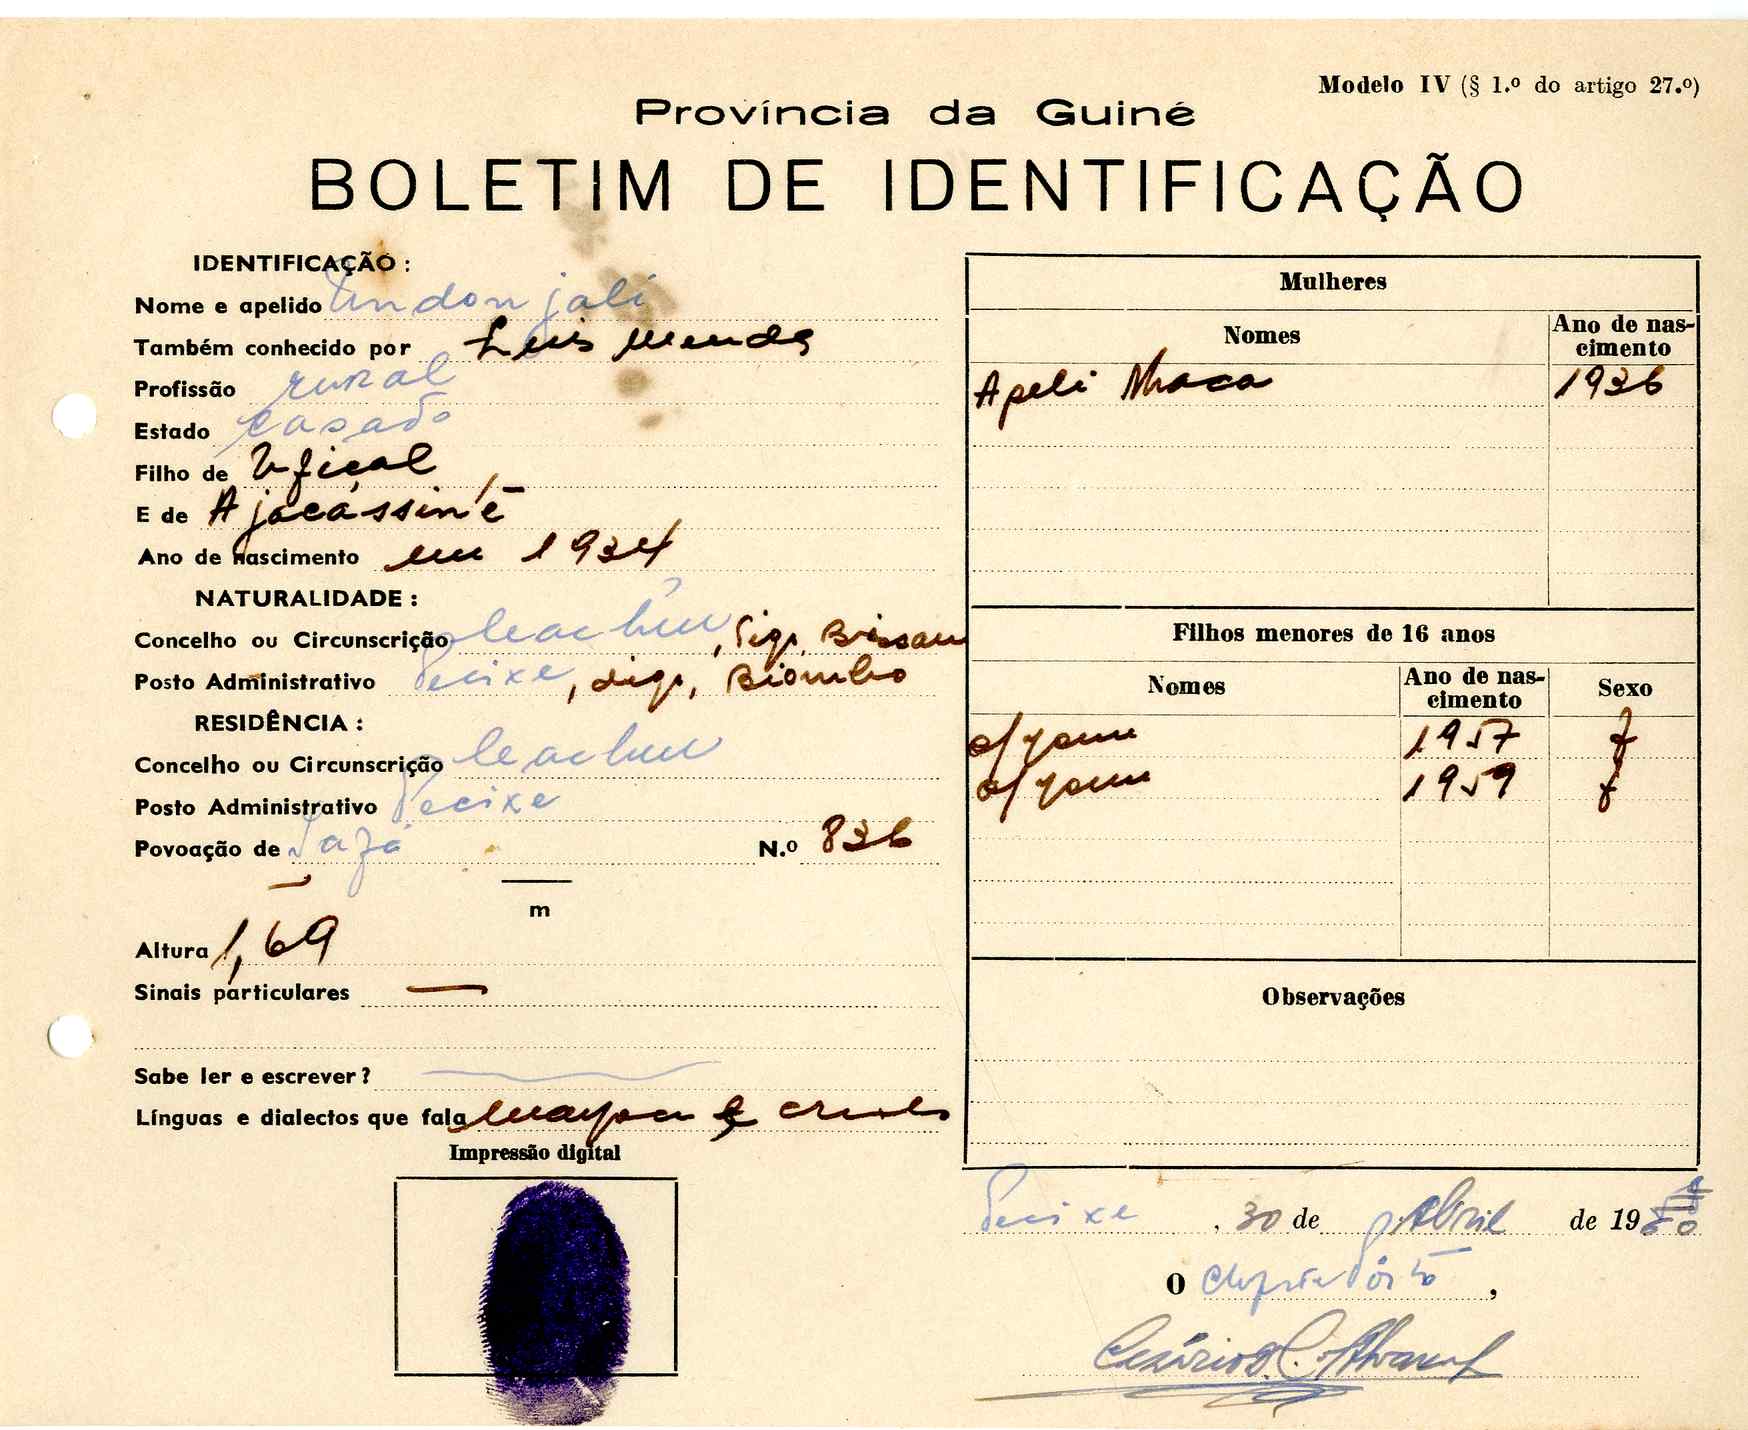 Modelo IV (§ 1.º do artigo 27.º)
Província da Guiné
BOLETIM DE IDENTIFICAÇÃO
IDENTIFICAÇÃO :
Nome e apelido Undon jali
Também conhecido por Luis Mendes
Profissão rural
Estado casado
Filho de Ufiçal
E de Ajacássiné
Ano de nascimento em 1934
NATURALIDADE :
Concelho ou Circunscrição , digo, Bissau
Posto Administrativo Pecixe, digo, Biombo
RESIDÊNCIA :
Concelho ou Circunscrição
Posto Administrativo Pecixe
Povoação de N.º 836
m
Altura 1,69
Sinais particulares —
Sabe ler e escrever?
Línguas e dialectos que fala e crioulo
Impressão digital
Mulheres
Nomes
Ano de nas-
cimento
Apeli Nhaca 1936
Filhos menores de 16 anos
Nomes
Ano de nas-
cimento
Sexo
1957 f
1959 f
Observações
Pecixe, 30 de Abril de 1960
O Chefe de Pôsto,